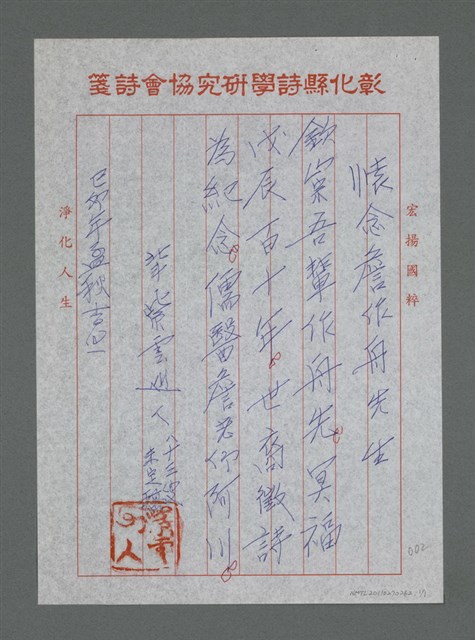 彰化縣詩學研究協會詩箋
宏揚國粹
懷念詹作舟先生
欽崇吾輩作舟先冥福
戊辰百十年世裔徵詩
為紀念儒醫詹老仔阿川
紫雲道人八十三叟
己卯年孟秋吉日
淨化人生
002